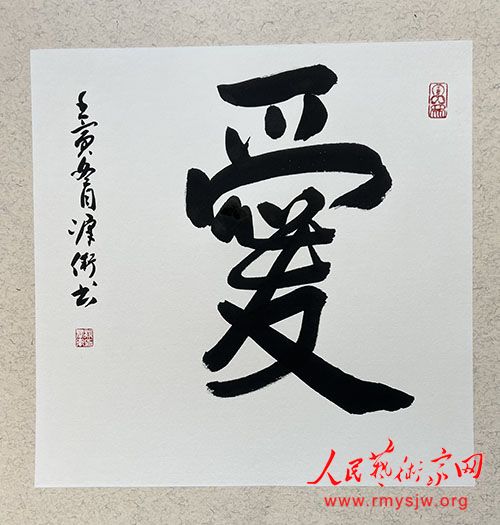 愛
壬寅春月书
人民藝術家网
www.rmysjw.org